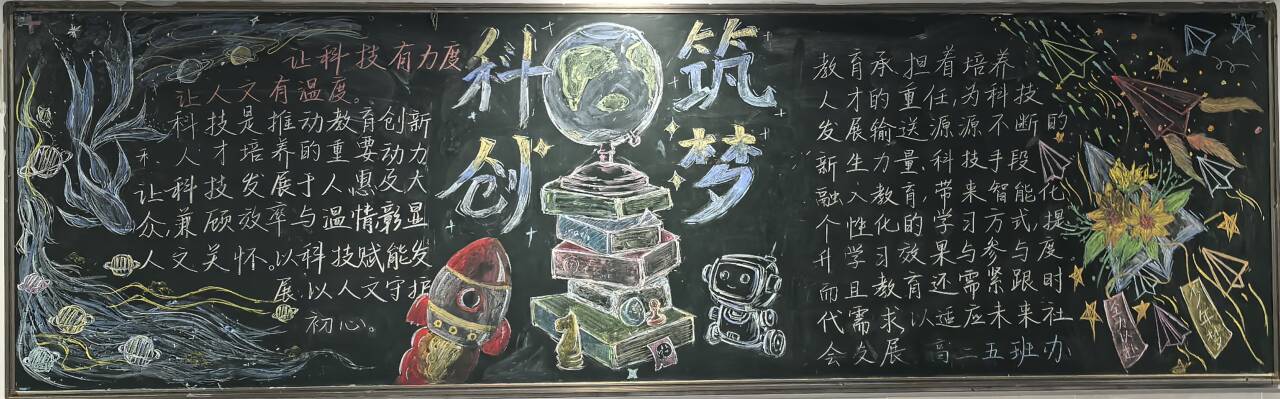 科创
筑梦
让科技有力度
让人文有温度。
科技是推动教育创新
和人才培养的重要动力
让科技发展于人惠及大
众,兼顾效率与温情,彰显
人文关怀。以科技赋能发
展,以人文守护
初心。
教育承担着培养
人才的重任,为科技
发展输送源源不断的
新生力量,科技手段
融入教育,带来智能化
个性化的学习方式,提
升学习效果与参与度
而且教育还需紧跟时
代需求以适应未来社
会发展 高二五班办